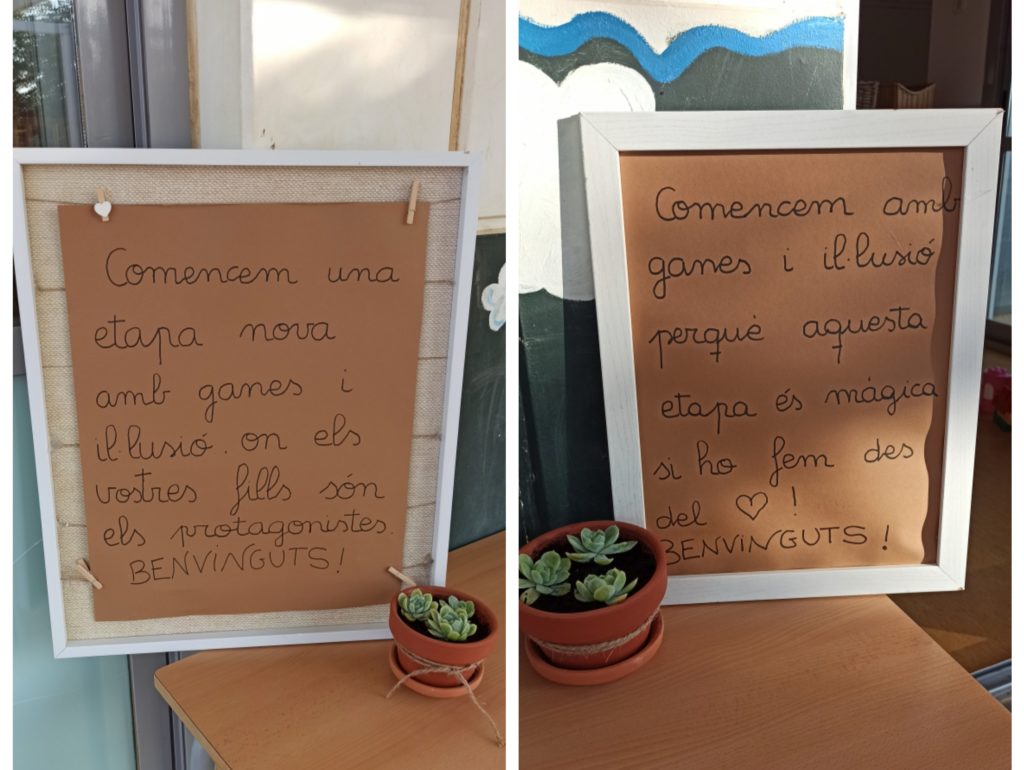 Comencem una
etapa nova
amb ganes i
il·lusió. on els
vostres fills són
els protagonistes.
BENVINGUTS!
Comencem amb
ganes i il·lusió
perquè aquesta
etapa és màgica
si ho fem des
del ♡ !
BENVINGUTS!